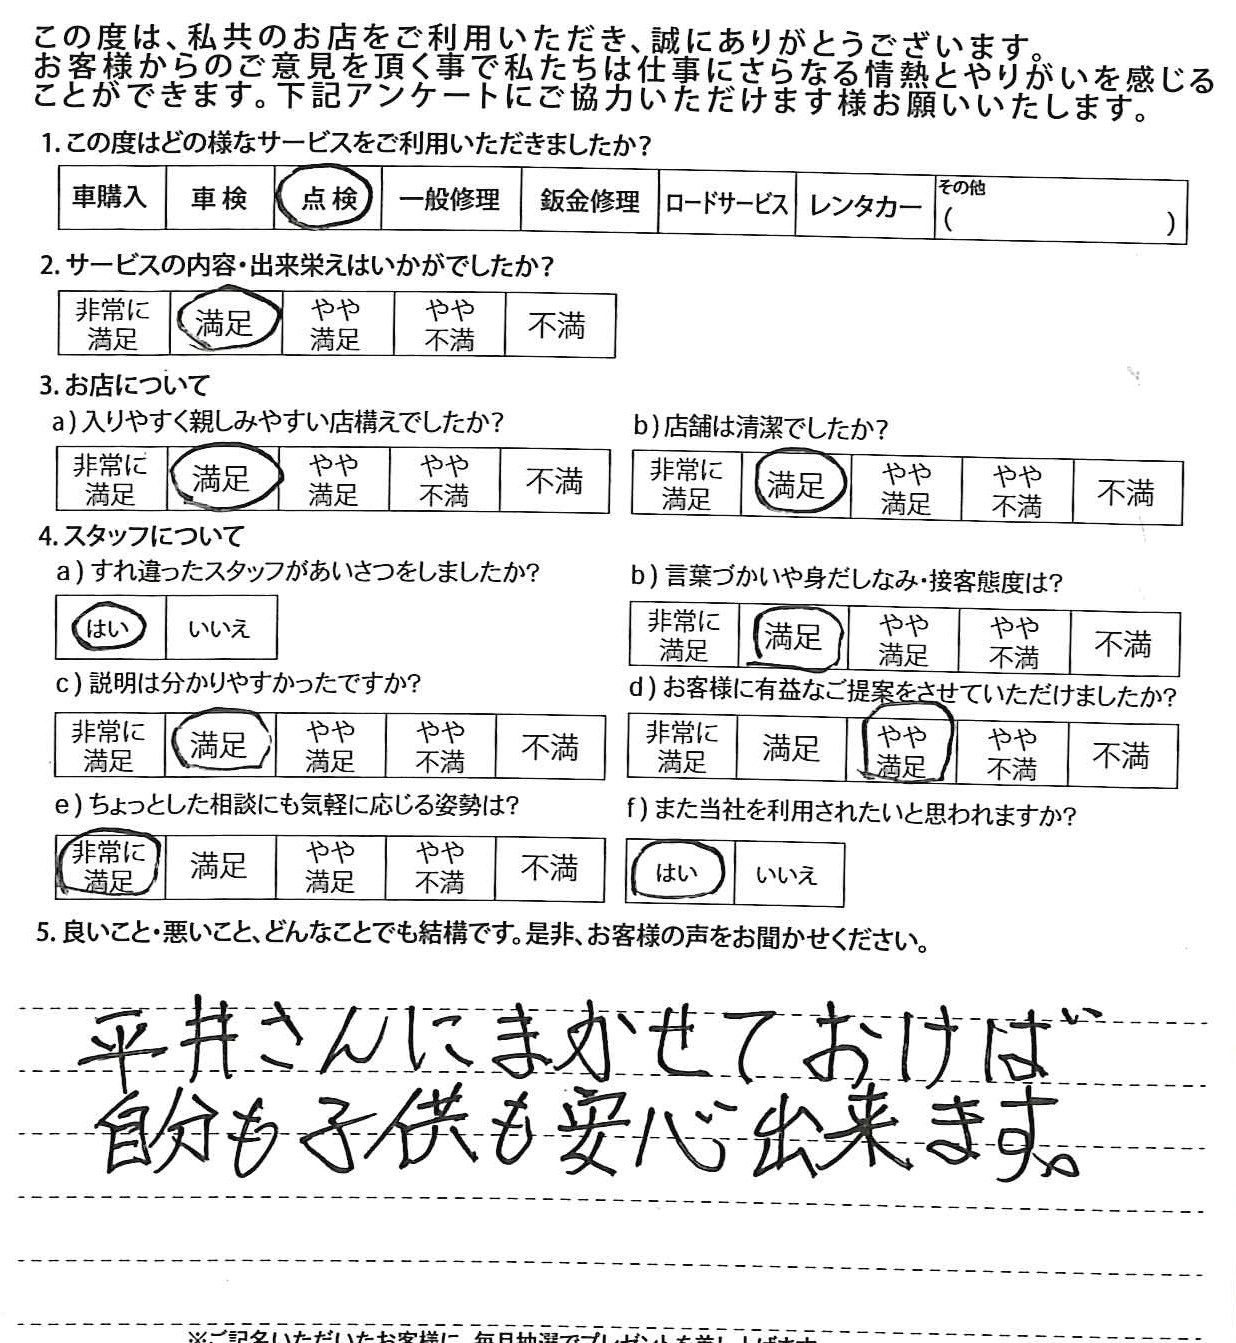 この度は、私共のお店をご利用いただき、誠にありがとうございます。
お客様からのご意見を頂く事で私たちは仕事にさらなる情熱とやりがいを感じる
ことができます。下記アンケートにご協力いただけます様お願いいたします。
1.この度はどの様なサービスをご利用いただきましたか?
車購入 車検 点検 一般修理 鈑金修理 ロードサービス レンタカー その他 ( )
2.サービスの内容・出来栄えはいかがでしたか?
非常に満足 満足 やや満足 やや不満 不満
3.お店について
a)入りやすく親しみやすい店構えでしたか?
非常に満足 満足 やや満足 やや不満 不満
b)店舗は清潔でしたか?
非常に満足 満足 やや満足 やや不満 不満
4.スタッフについて
a)すれ違ったスタッフがあいさつをしましたか?
はい いいえ
b)言葉づかいや身だしなみ・接客態度は?
非常に満足 満足 やや満足 やや不満 不満
c)説明は分かりやすかったですか?
非常に満足 満足 やや満足 やや不満 不満
d)お客様に有益なご提案をさせていただけましたか?
非常に満足 満足 やや満足 やや不満 不満
e)ちょっとした相談にも気軽に応じる姿勢は?
非常に満足 満足 やや満足 やや不満 不満
f)また当社を利用されたいと思われますか?
はい いいえ
5.良いこと・悪いこと、どんなことでも結構です。是非、お客様の声をお聞かせください。
平井さんにまかせておけば
自分も子供も安心出来ます。
※ご記名いただいたお客様に、毎月抽選でプレゼントを差し上げます